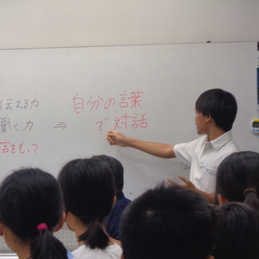 伝える力
聞く力 ⇒
言をもって
自分の言葉
で対話